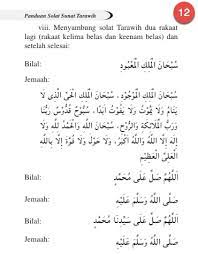 Panduan Solat Sunat Tarawih
12
viii. Menyambung solat Tarawih dua rakaat
lagi (rakaat kelima belas dan keenam belas) dan
setelah selesai:
Bilal: سُبْحَانَ الْمَلِكِ الْمَعْبُودِ
Jemaah:
سُبْحَانَ الْمَلِكِ الْمَوْجُودِ، سُبْحَانَ الْمَلِكِ الْحَيِّ الَّذِي لَا
يَنَامُ وَلَا يَمُوتُ وَلَا يَفُوتُ أَبَدًا، سُبُّوحٌ قُدُّوسٌ رَبُّنَا
وَرَبُّ الْمَلَائِكَةِ وَالرُّوحِ، سُبْحَانَ اللَّهِ وَالْحَمْدُ لِلَّهِ وَلَا
إِلَهَ إِلَّا اللَّهُ وَاللَّهُ أَكْبَرُ، وَلَا حَوْلَ وَلَا قُوَّةَ إِلَّا بِاللَّهِ
الْعَلِيِّ الْعَظِيْمِ
Bilal: اَللَّهُمَّ صَلِّ عَلَى مُحَمَّدٍ
Jemaah: صَلَّى اللَّهُ وَسَلَّمَ عَلَيْهِ
Bilal: اَللَّهُمَّ صَلِّ عَلَى سَيِّدِنَا مُحَمَّدٍ
Jemaah: صَلَّى اللَّهُ وَسَلَّمَ عَلَيْهِ